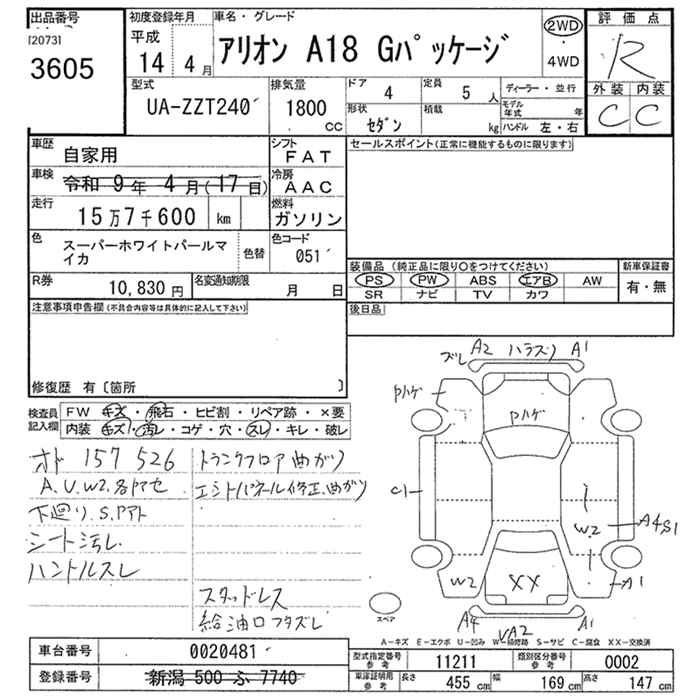 出品番号
[2073]
3605
初度登録年月
平成
14 4月
車名・グレード
アリオン A18 Gパッケージ
2WD
・
4WD
評価点
R
外装 内装
C C
型式
UA-ZZT240
排気量
1800
CC
ドア
4
定員
5 人
ディーラー・並行
形状
セダン
積載
kg
モデル年式 年
ハンドル 左・右
車歴
自家用
シフト
FAT
車検
令和 9年 4月(17日)
冷房
AAC
走行
15万7千600 km
燃料
ガソリン
色
スーパーホワイトパールマイカ
色替
色コード
051
R券
10,830 円
名変通知期限
月 日
セールスポイント(正常に機能するものに限ります)
装備品 (純正品に限り○をつけてください)
PS PW ABS エアB AW
SR ナビ TV カワ
新車保証書
有・無
後日品
注意事項申告欄(不具合内容等は具体的に記入して下さい)
修復歴 有〔箇所 〕
検査員記入欄
FW キズ・飛石・ヒビ割・リペア跡・×要
内装 キズ・汚レ・コゲ・穴・スレ・キレ・破レ
オド 157526
A.U.W2.各ドアセ
下廻り.S.Pアト
シート汚レ
ハンドルスレ
トランクフロア曲がり
エンドパネル修正.曲がり
スタッドレス
給油口フタズレ
ズレ A2 ハラズリ A1
Pハゲ
Pハゲ
C1
W2
A4S1
W2
XX
A1
スペア
A4
VA2
A1
A-キズ E-エクボ U-凹み W-補修跡 S-サビ C-腐食 XX-交換済
車台番号
0020481
登録番号
新潟 500 ふ 7740
型式指定番号
参考
11211
類別区分番号
参考
0002
車庫証明用
参考
長さ 455 cm 幅 169 cm 高さ 147 cm